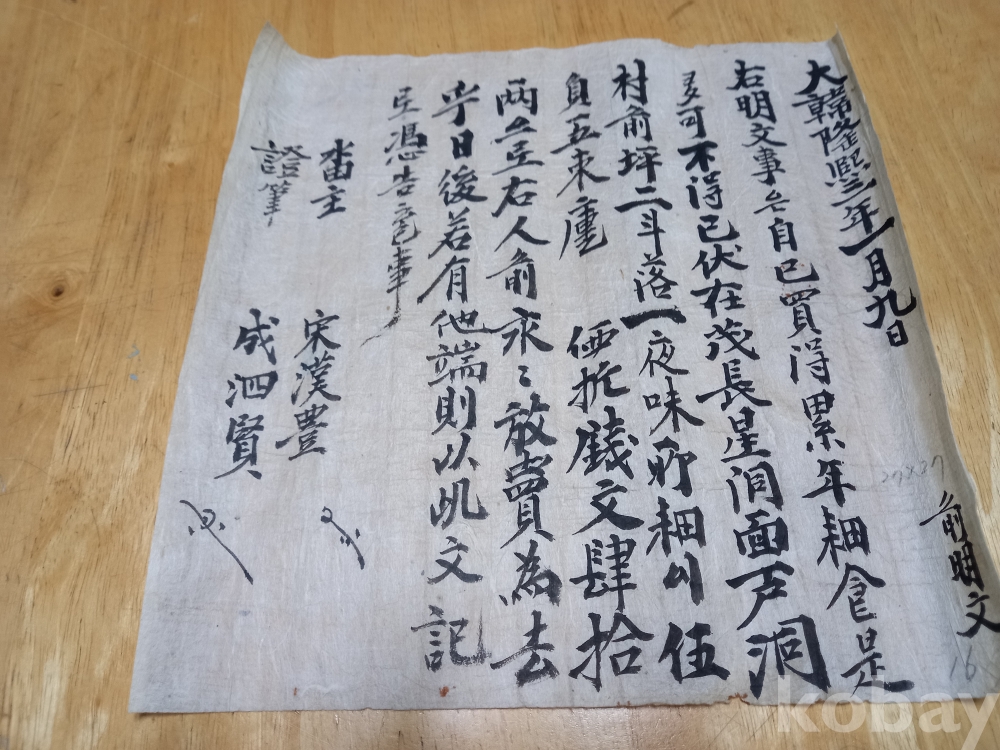 大韓隆熙三年一月九日 前明文
右明文事自己買得累年耕食是
多可不得已伏在茂長星洞面芦洞
村前坪二斗落一夜味所耕伍
負五束庫 価折錢文肆拾
兩右人前永〻放賣為去
乎日後若有他端則以此文記
憑告事
畓主 宋漢豊
證筆 成泗賢
27x27
16
kobay